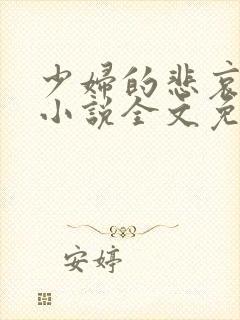 少婦的悲哀
小說全文免
安婷